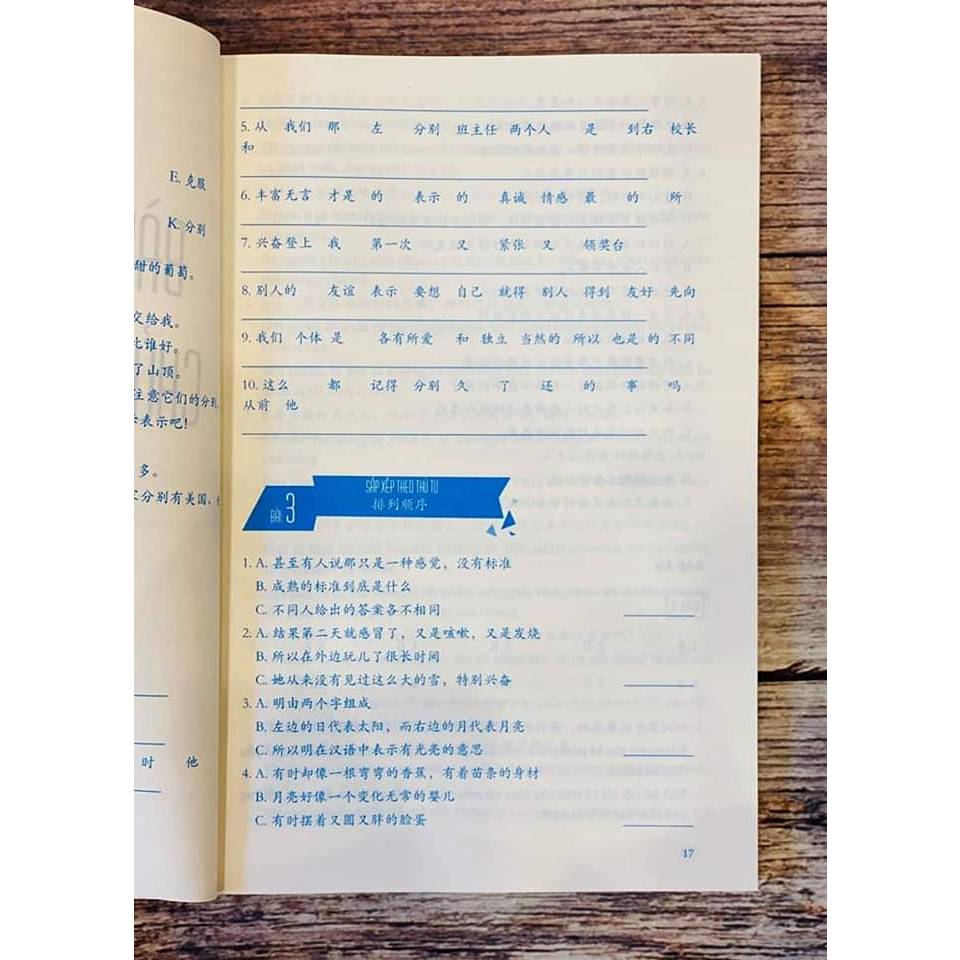 E. 克服
K. 分别
甜的葡萄。
交给我。
比谁好。
了山顶。
注意它们的分别
表示吧!
多。
分别有美国、
时 他
5. 从 我们 那 左 分别 班主任 两个人 是 到右 校长
和
6. 丰富无言 才是 的 表示 的 真诚 情感 最 的 所
7. 兴奋登上 我 第一次 又 紧张 又 领奖台
8. 别人的 友谊 表示 要想 自己 就得 别人 得到 友好 先向
9. 我们 个体 是 各有所爱 和 独立 当然的 所以 也是 的 不同
10. 这么 都 记得 分别 久 了 还 的 事 吗
从前 他
BÀI 3
SẮP XẾP THEO THỨ TỰ
排列顺序
1. A. 甚至有人说那只是一种感觉，没有标准
B. 成熟的标准到底是什么
C. 不同人给出的答案各不相同
2. A. 结果第二天就感冒了，又是咳嗽，又是发烧
B. 所以在外边玩儿了很长时间
C. 她从来没有见过这么大的雪，特别兴奋
3. A. 明由两个字组成
B. 左边的日代表太阳，而右边的月代表月亮
C. 所以明在汉语中表示有光亮的意思
4. A. 有时却像一根弯弯的香蕉，有着苗条的身材
B. 月亮好像一个变化无常的婴儿
C. 有时摆着又圆又胖的脸蛋
17